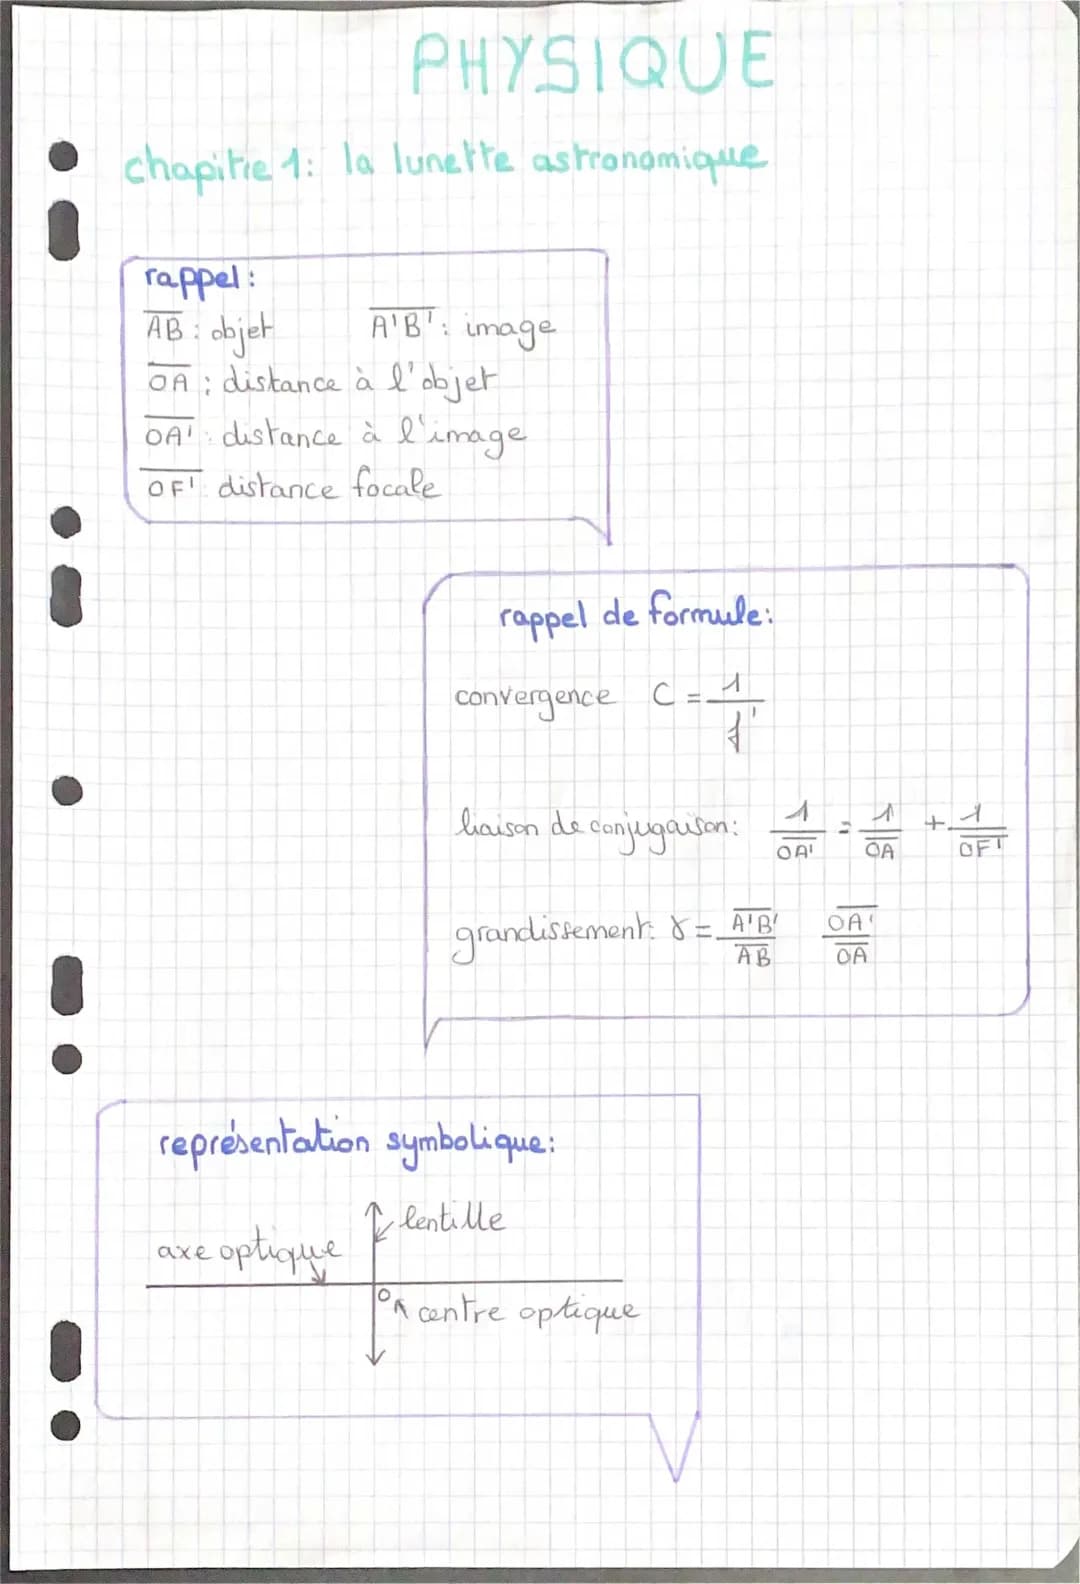 PHYSIQUE
chapitre 1: la lunette astronomique
rappel:
A̅B̅ : objet A̅'B̅' : image
O̅A̅ : distance à l'objet
O̅A̅' : distance à l'image
O̅F̅' distance focale
rappel de formule:
convergence C = 1/f'
liaison de conjugaison: 1/O̅A̅' = 1/O̅A̅ + 1/O̅F̅'
grandissement: γ = A̅'B̅'/A̅B̅ O̅A̅'/O̅A̅
représentation symbolique:
lentille
axe optique
O centre optique